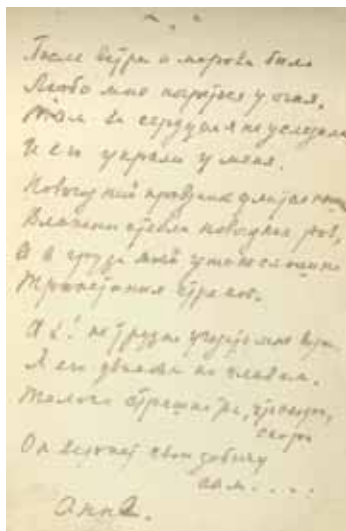 * * *
После ветра и мороза было
Любо мне погреться у огня.
Там за сердцем я не уследила
И его украли у меня.
Новогодний праздник длится пышно
Влажны стебли новогодних роз,
А в груди моей уже не слышно
Трепетания стрекоз.
Ах! не трудно угадать мне вора
Я его узнала по глазам.
Только страшно так, что скоро,
скоро
Он вернет свою добычу
сам....
Анна.